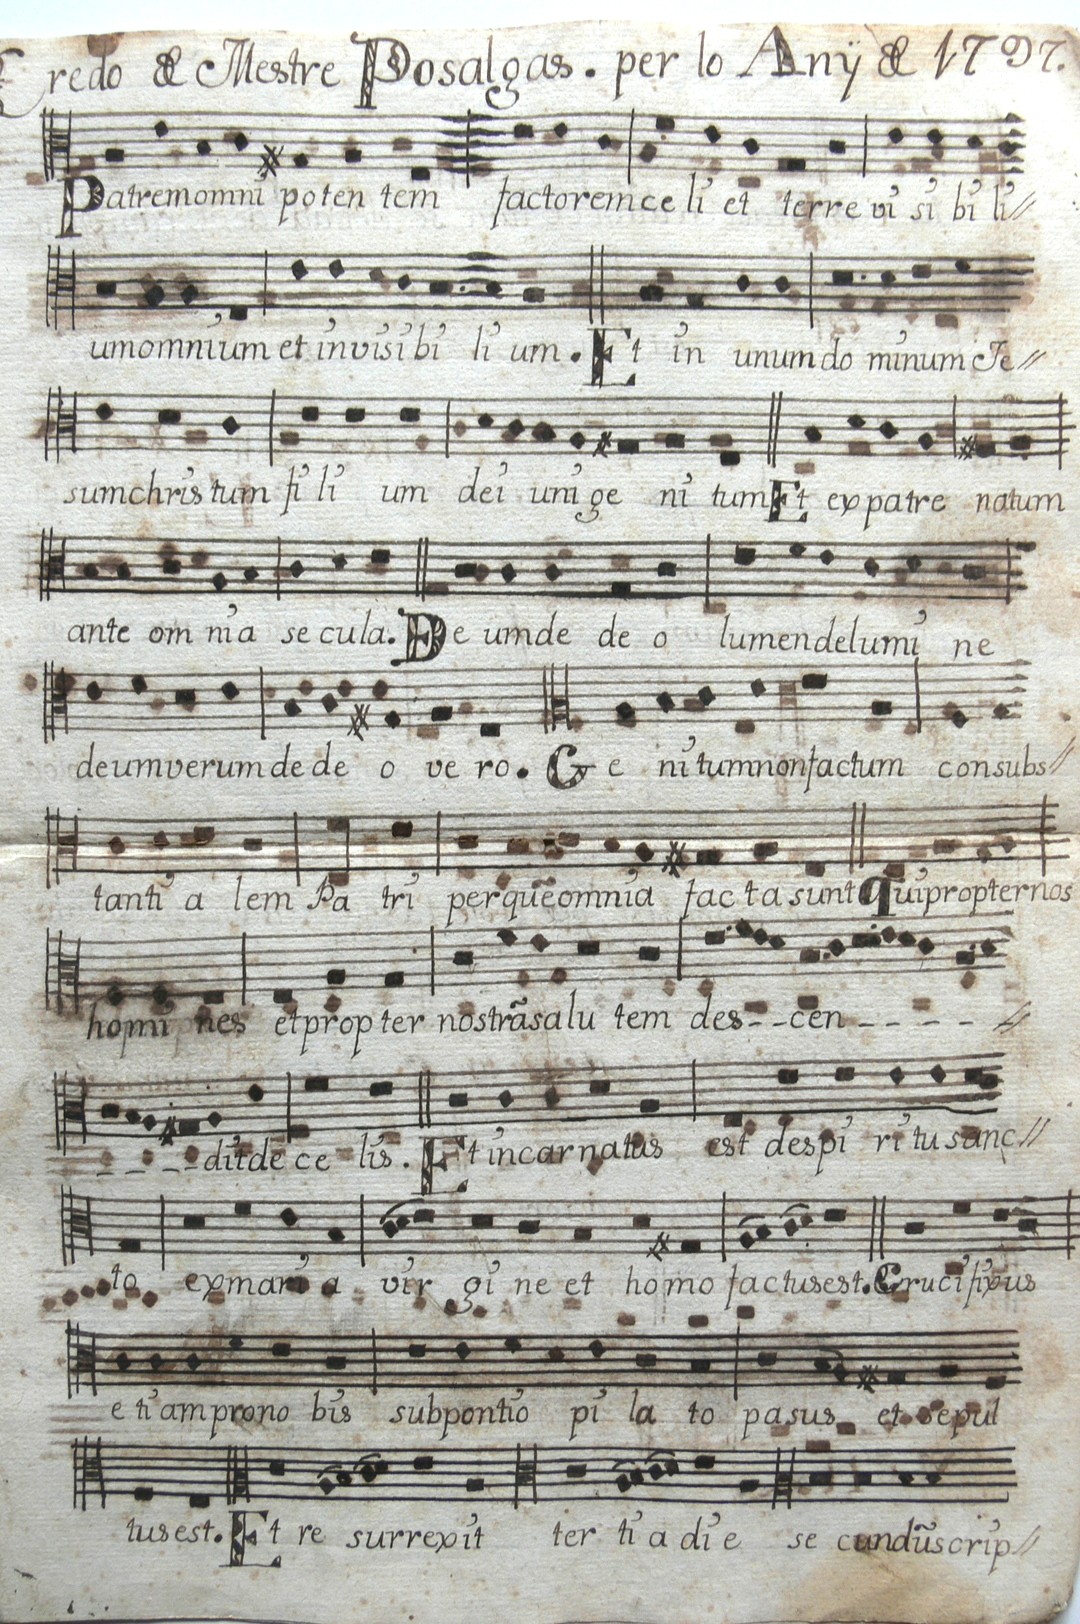 Credo de Mestre Posalgas. per lo Anÿ de 1797.
Patrem omni poten tem factorem ce li et terre vi si bi li//
um omnium et invisibi li um. Et in unum do minum Je//
sum christum fi li um dei uni ge ni tum Et ex patre natum
ante om nia se cula. De um de de o lumen de lumi ne
deum verum de de o ve ro. Ge ni tum non factum consubs//
tanti a lem Pa tri per quẽ omnia fac ta sunt Qui propter nos
homi nes et prop ter nostrã salu tem des--cen----//
----dit de ce lis. Et incarnatus est de spi ri tu sanc//
to ex mari a vir gi ne et ho mo factus est. Crucifixus
e ti am pro no bis sub pontio pi la to pasus et sepul
tus est. Et re surrexit ter ti a di e se cundũ scrip//